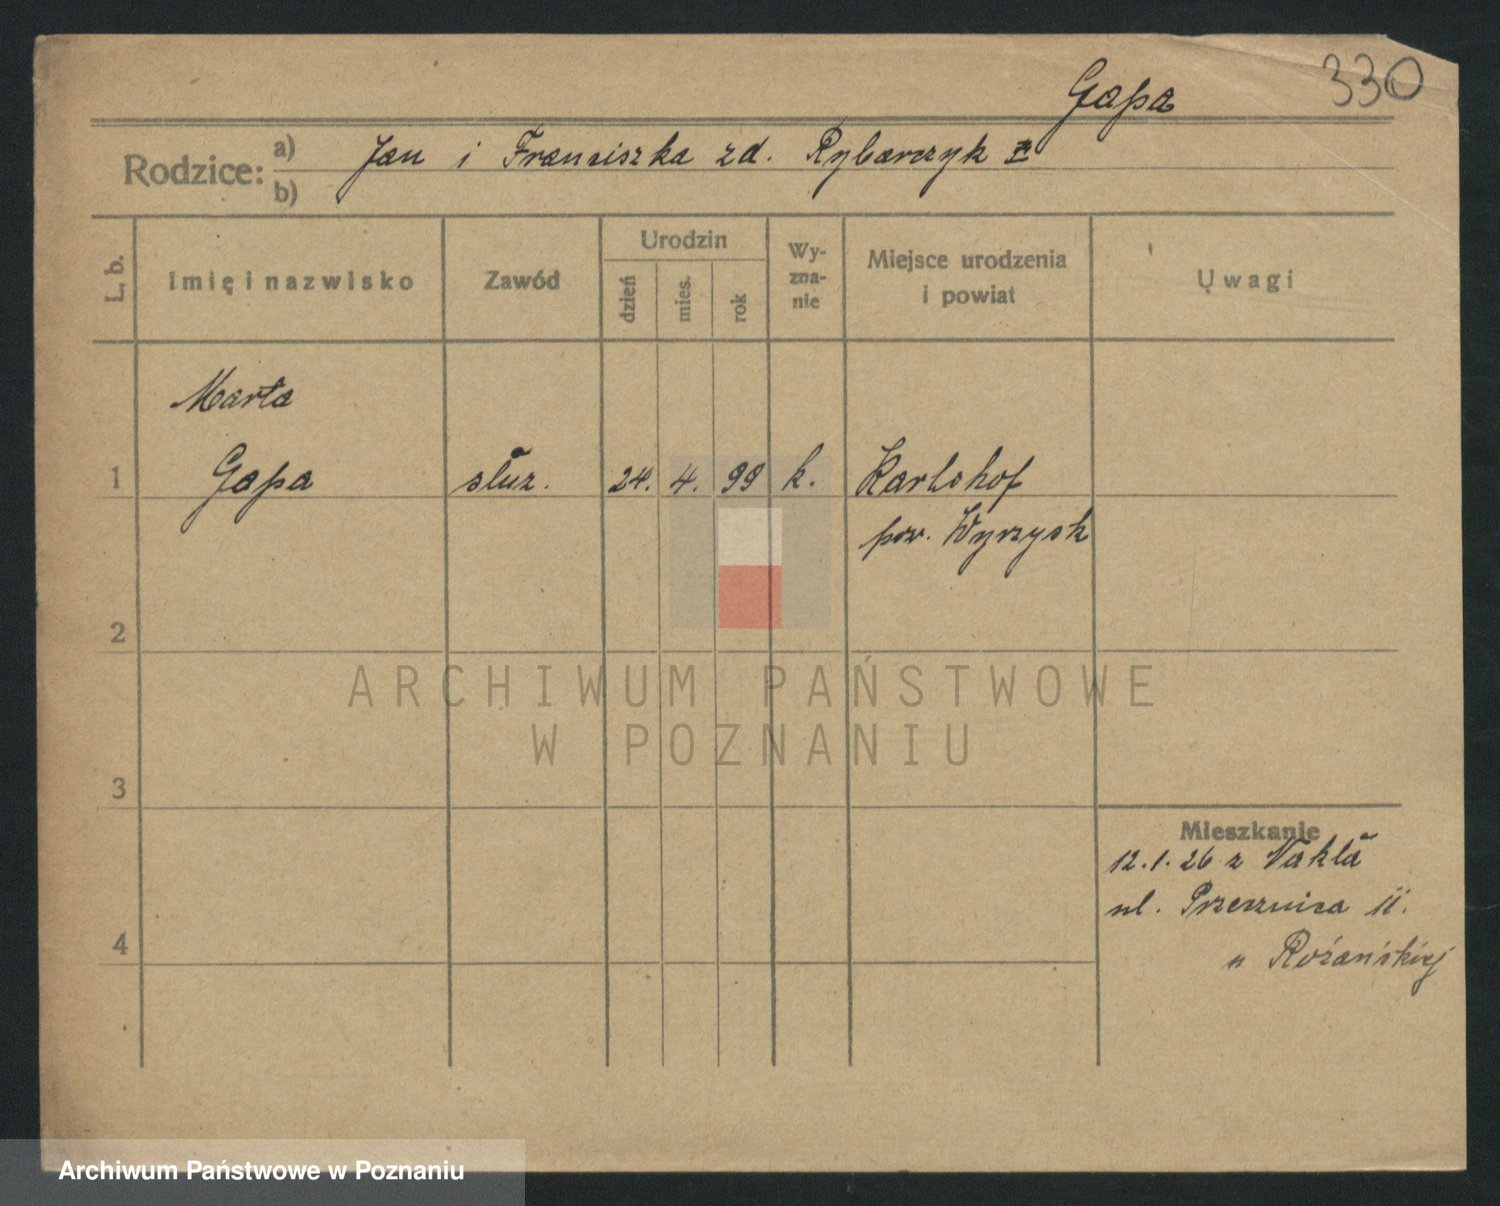 330
Gapa
Rodzice: a) Jan i Franciszka zd. Rybarczyk
b)
L. b.
Imię i nazwisko
Zawód
Urodzin
dzień
mies.
rok
Wy-
zna-
nie
Miejsce urodzenia
i powiat
Uwagi
Marta
1 Gapa służ. 24. 4. 99 k. Karlshof
pow. Wyrzysk
2
3
4
Mieszkanie
12.1.26 z Nakła
ul. Przecznica 11.
u Rożańskiej
ARCHIWUM PAŃSTWOWE
W POZNANIU
Archiwum Państwowe w Poznaniu